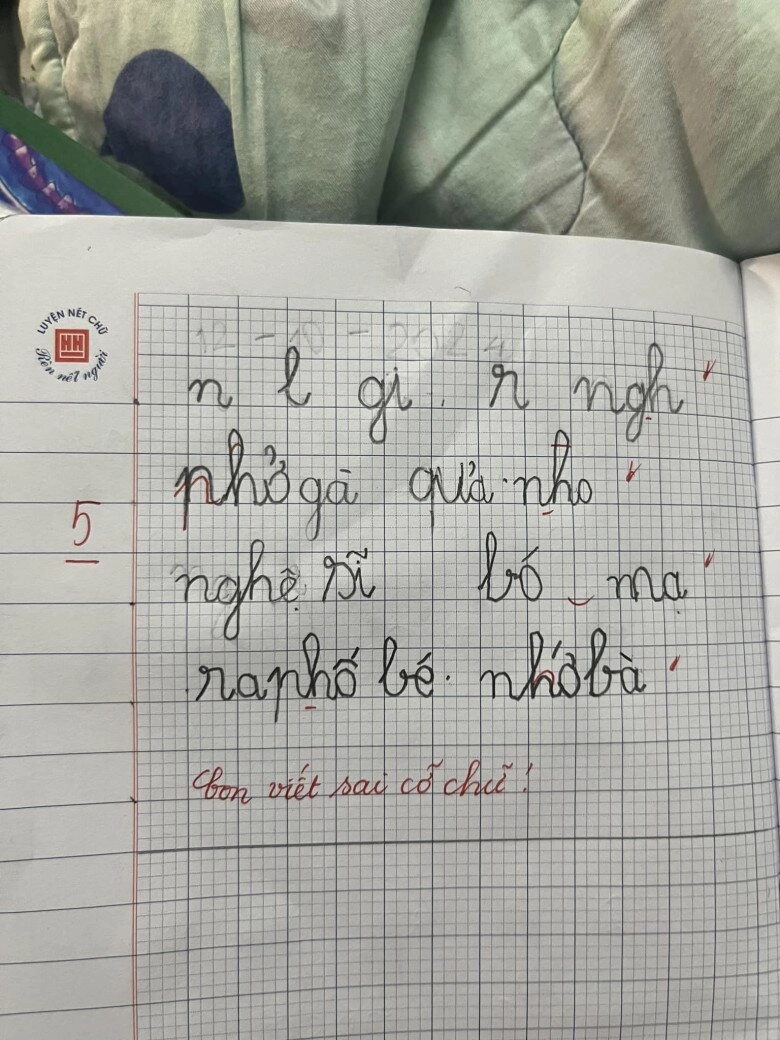 LUYỆN NÉT CHỮ
HH
Rèn nết người
12 - 10 - 2024
n l gi r ngh
phở gà quả nho
nghệ sĩ bố mạ
ra phố bé nhớ bà
5
Con viết sai cỡ chữ!